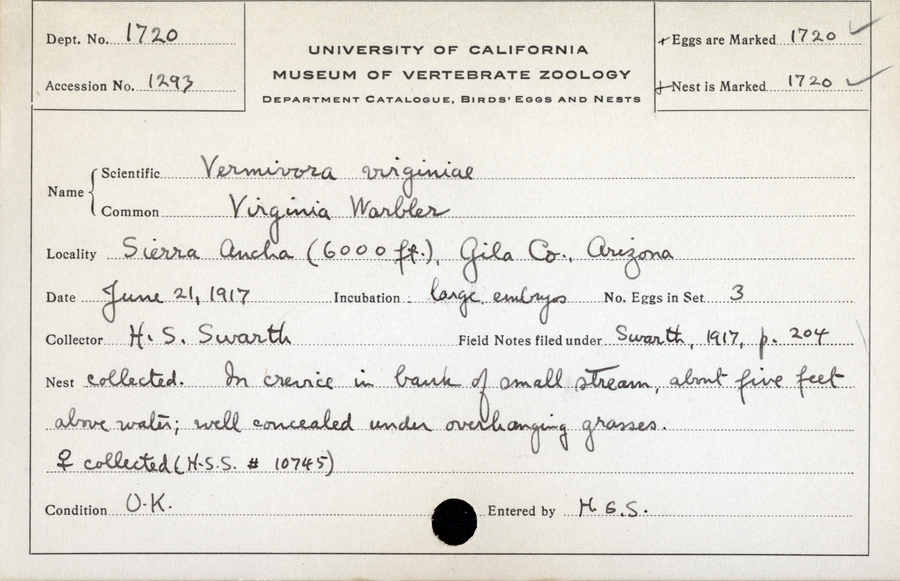 Dept. No. 1720
Accession No. 1293
UNIVERSITY OF CALIFORNIA
MUSEUM OF VERTEBRATE ZOOLOGY
DEPARTMENT CATALOGUE, BIRDS' EGGS AND NESTS
+ Eggs are Marked 1720 ✓
+ Nest is Marked 1720 ✓
Name { Scientific Vermivora virginiae
Common Virginia Warbler
Locality Sierra Ancha (6000 ft.), Gila Co., Arizona
Date June 21, 1917 Incubation large embryos No. Eggs in Set 3
Collector H. S. Swarth Field Notes filed under Swarth, 1917, p. 204
Nest collected. In crevice in bank of small stream, about five feet
above water; well concealed under overhanging grasses.
♀ collected (H.S.S. # 10745)
Condition O.K. Entered by H.S.S.